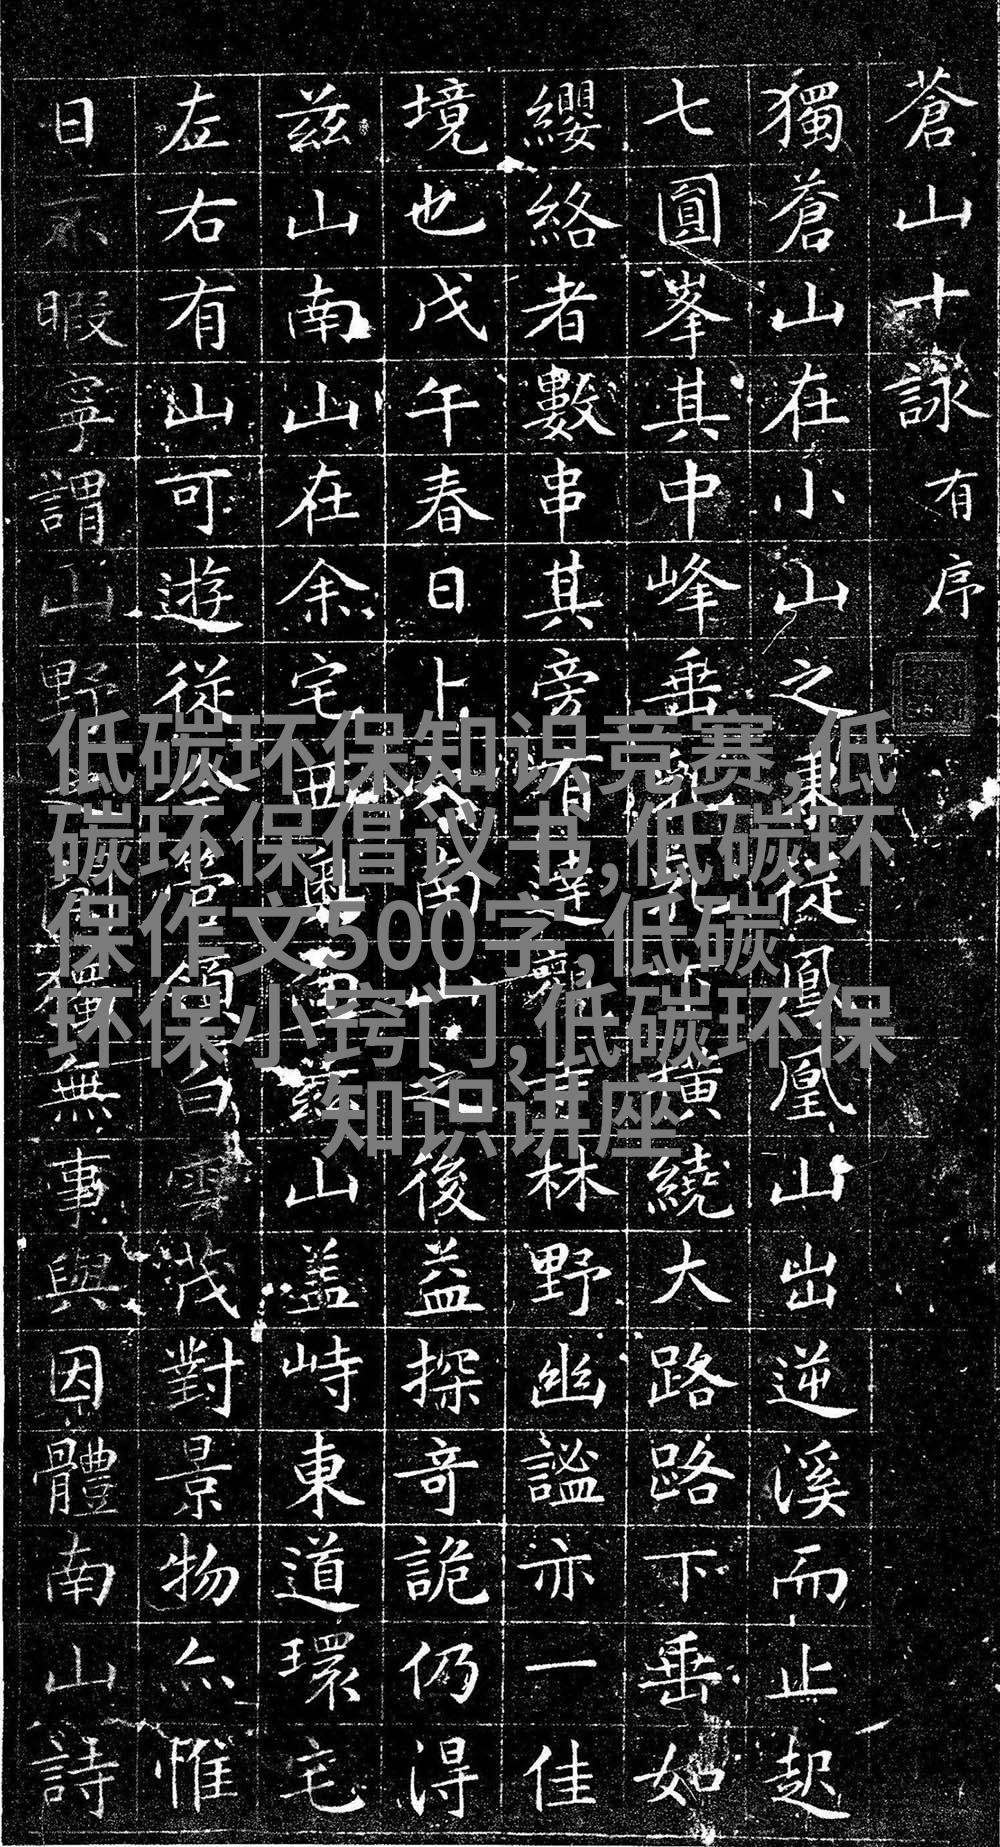 蒼山十詠 有序
獨蒼山在小山之東從鳳凰山出逆溪而止起
七圓峯其中峰垂橫繞大路路下垂如
纓絡者數串其旁有林野幽謐亦一佳
境也戊午春日卜南山之後益探奇詭仍得
茲山南山在余宅茲山盖峙東道環宅
左右有山可遊從今管領白雲茂對景物亦惟
日不暇寧謂山野獨無事與因體南山詩
低碳环保知识竞赛,低
碳环保倡议书,低碳环
保作文500字,低碳
环保小窍门,低碳环保
知识讲座